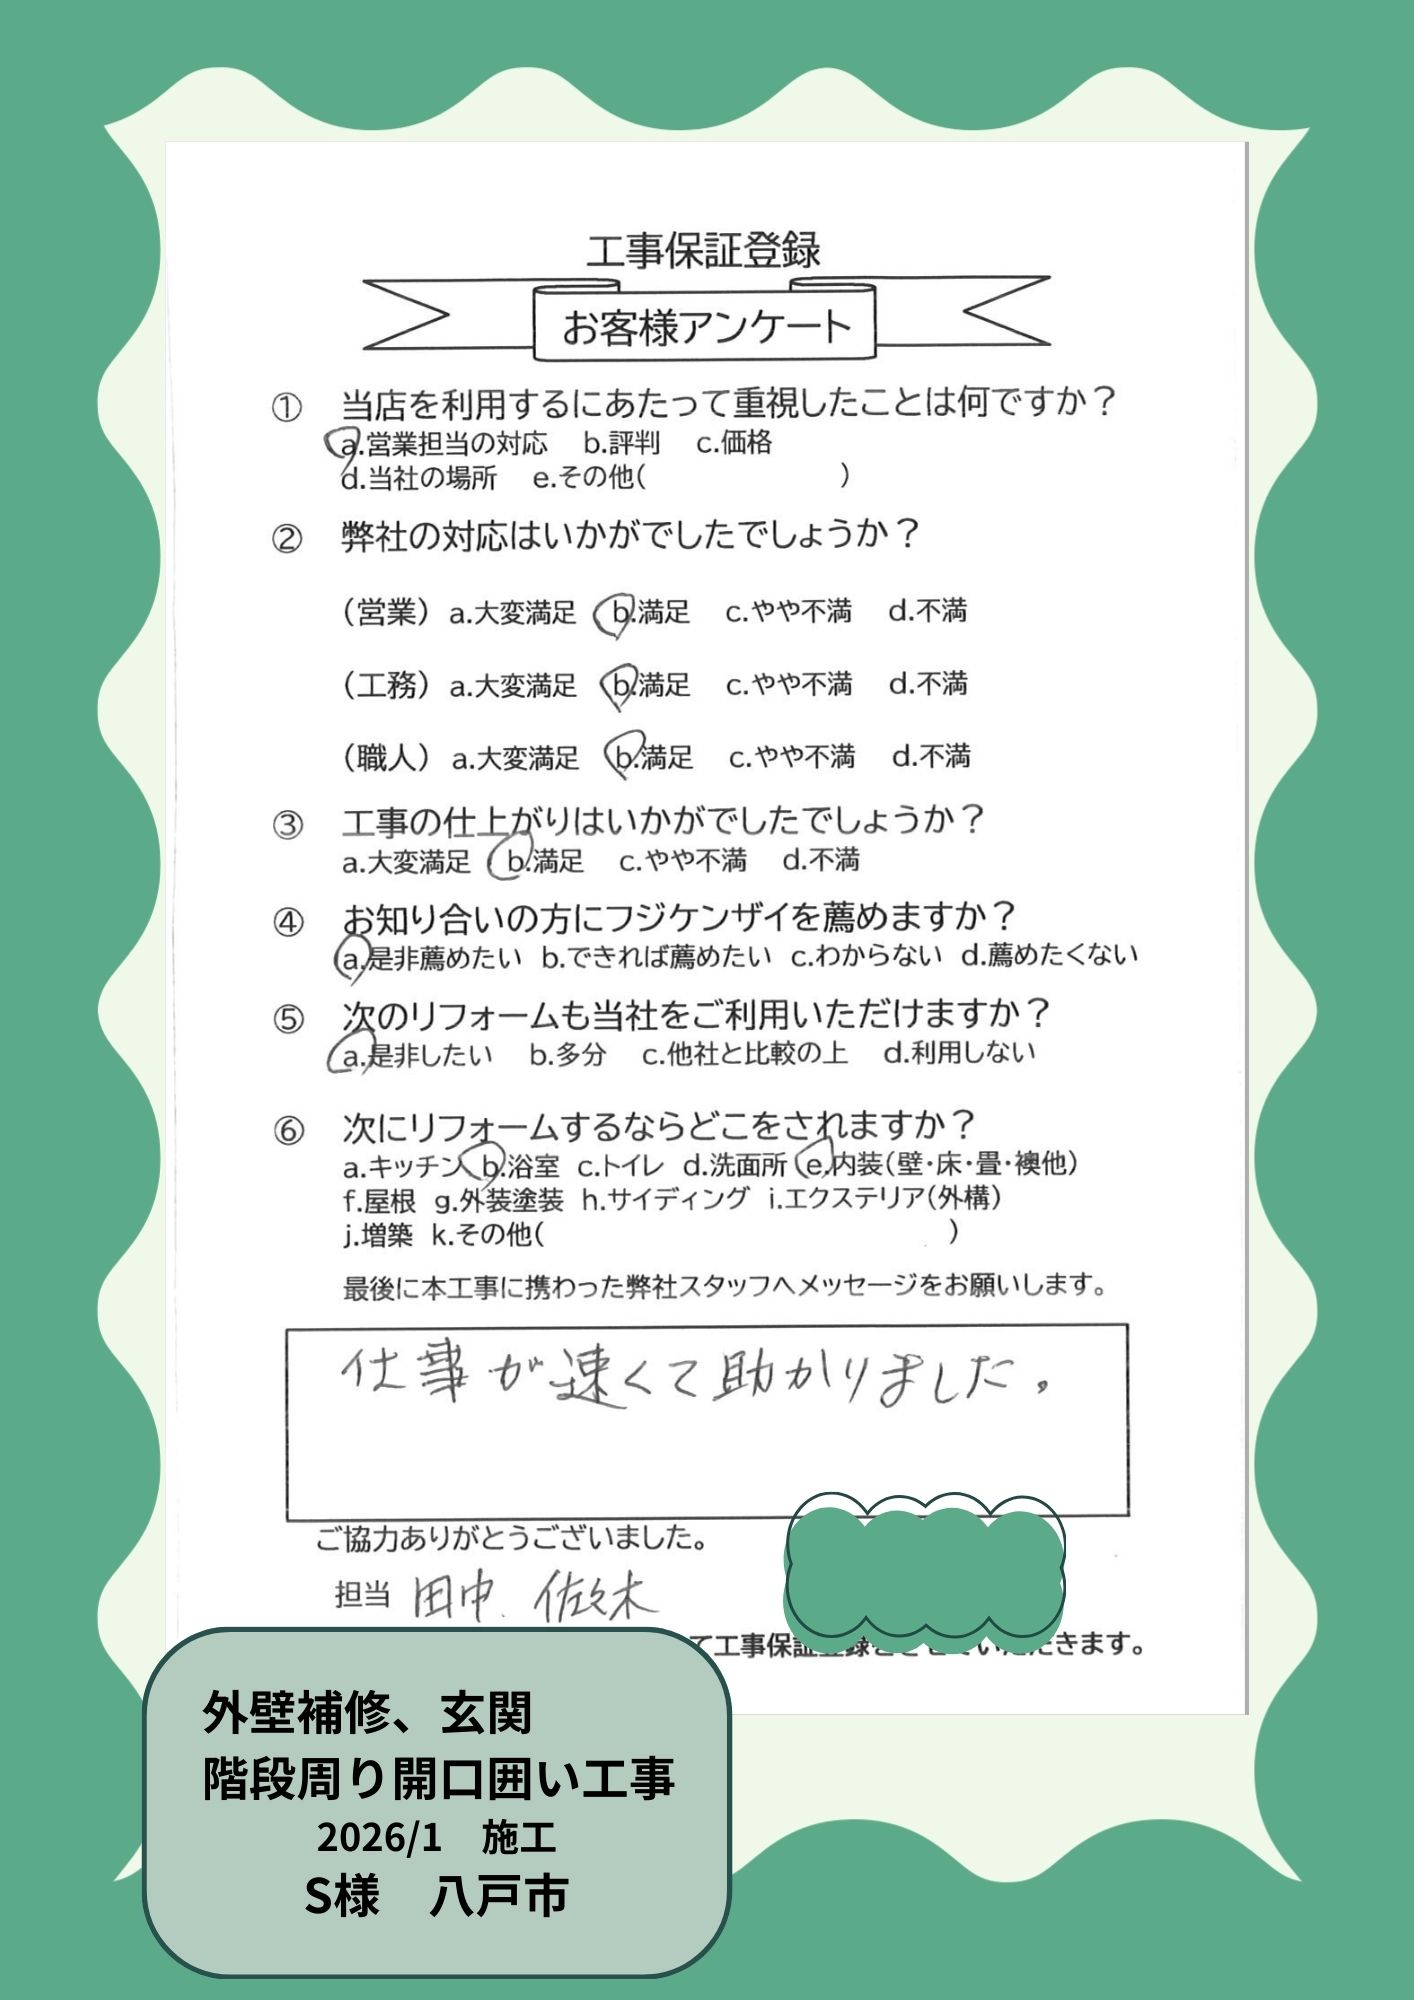 工事保証登録
お客様アンケート
① 当店を利用するにあたって重視したことは何ですか？
a.営業担当の対応 b.評判 c.価格
d.当社の場所 e.その他( )
② 弊社の対応はいかがでしたでしょうか？
（営業）a.大変満足 b.満足 c.やや不満 d.不満
（工務）a.大変満足 b.満足 c.やや不満 d.不満
（職人）a.大変満足 b.満足 c.やや不満 d.不満
③ 工事の仕上がりはいかがでしたでしょうか？
a.大変満足 b.満足 c.やや不満 d.不満
④ お知り合いの方にフジケンザイを薦めますか？
a.是非薦めたい b.できれば薦めたい c.わからない d.薦めたくない
⑤ 次のリフォームも当社をご利用いただけますか？
a.是非したい b.多分 c.他社と比較の上 d.利用しない
⑥ 次にリフォームするならどこをされますか？
a.キッチン b.浴室 c.トイレ d.洗面所 e.内装（壁・床・畳・襖他）
f.屋根 g.外装塗装 h.サイディング i.エクステリア（外構）
j.増築 k.その他( )
最後に本工事に携わった弊社スタッフへメッセージをお願いします。
仕事が速くて助かりました。
ご協力ありがとうございました。
担当 田中 佐々木
て工事保証登録をさせていただきます。
外壁補修、玄関
階段周り開口囲い工事
2026/1 施工
S様 八戸市